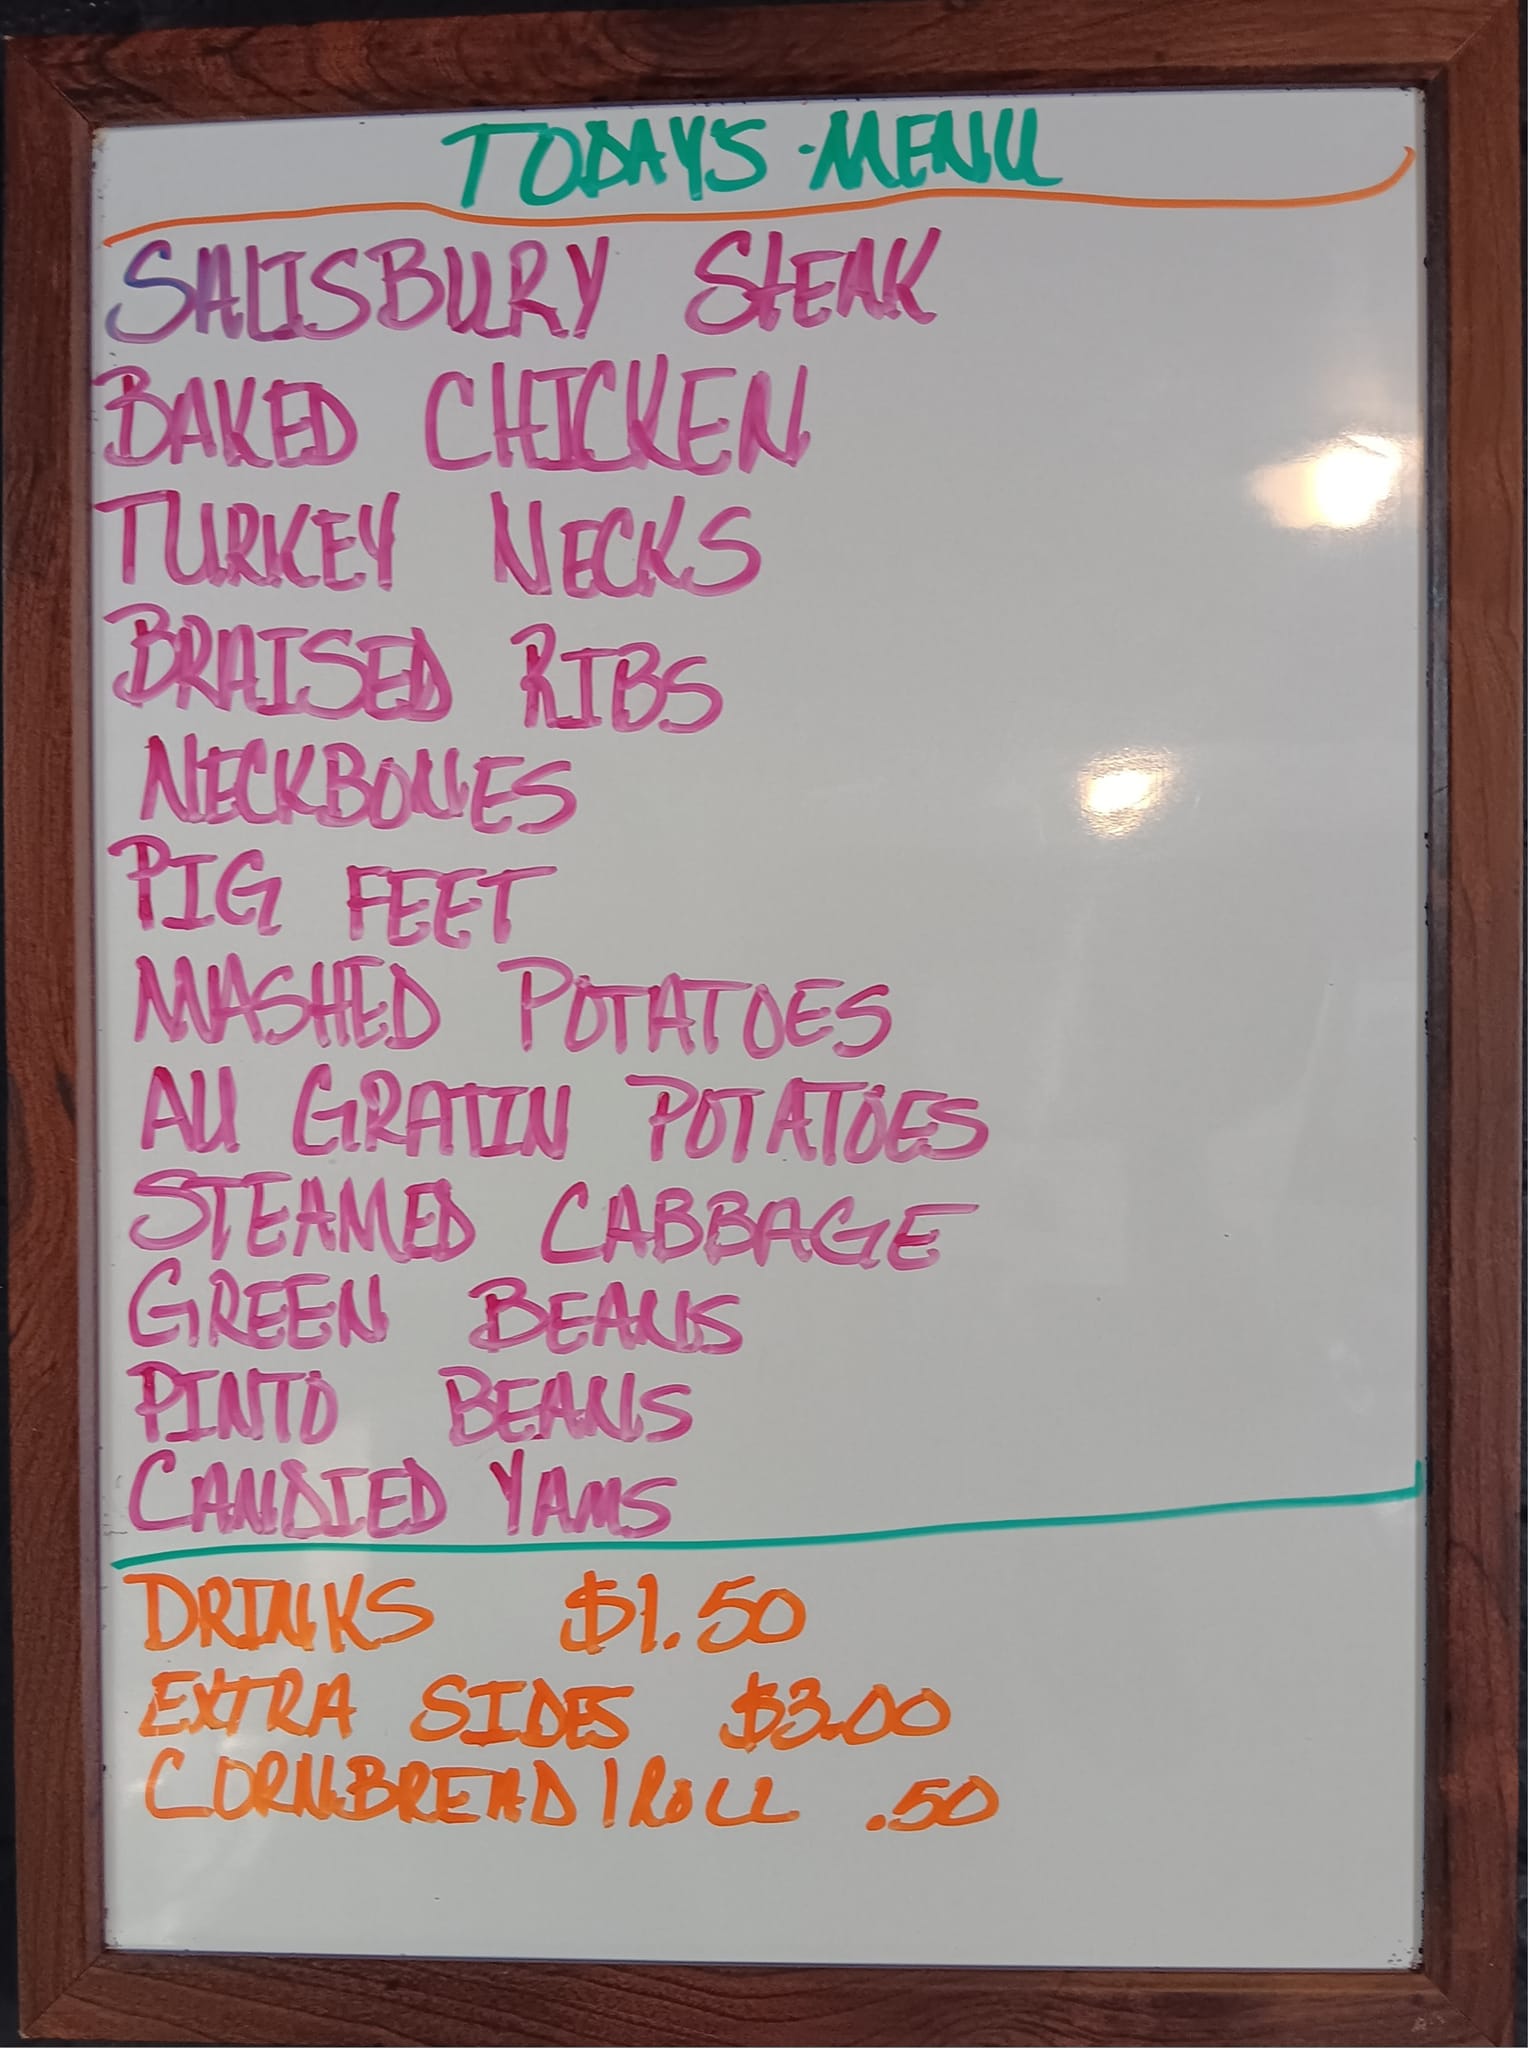 TODAY'S MENU
SALISBURY STEAK
BAKED CHICKEN
TURKEY NECKS
BRAISED RIBS
NECKBONES
PIG FEET
MASHED POTATOES
AU GRATIN POTATOES
STEAMED CABBAGE
GREEN BEANS
PINTO BEANS
CANDIED YAMS
DRINKS $1.50
EXTRA SIDES $3.00
CORNBREAD/ROLL .50